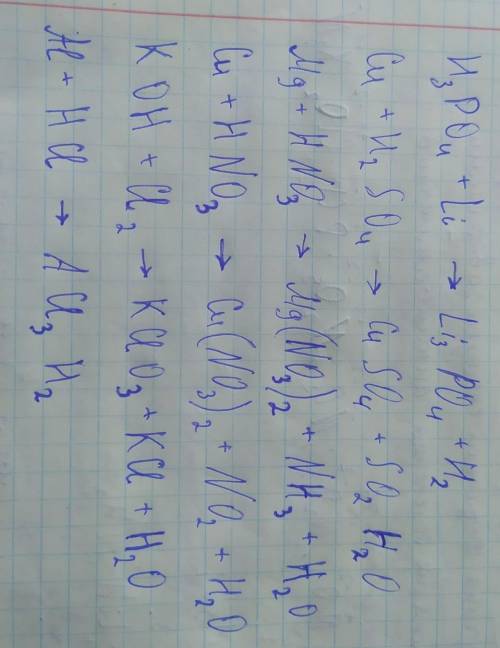 H₃PO₄ + Li → Li₃PO₄ + H₂
Cu + H₂SO₄ → CuSO₄ + SO₂ H₂O
Mg + HNO₃ → Mg(NO₃)₂ + NH₃ + H₂O
Cu + HNO₃ → Cu(NO₃)₂ + NO₂ + H₂O
KOH + Cl₂ → KClO₃ + KCl + H₂O
Al + HCl → ACl₃ H₂